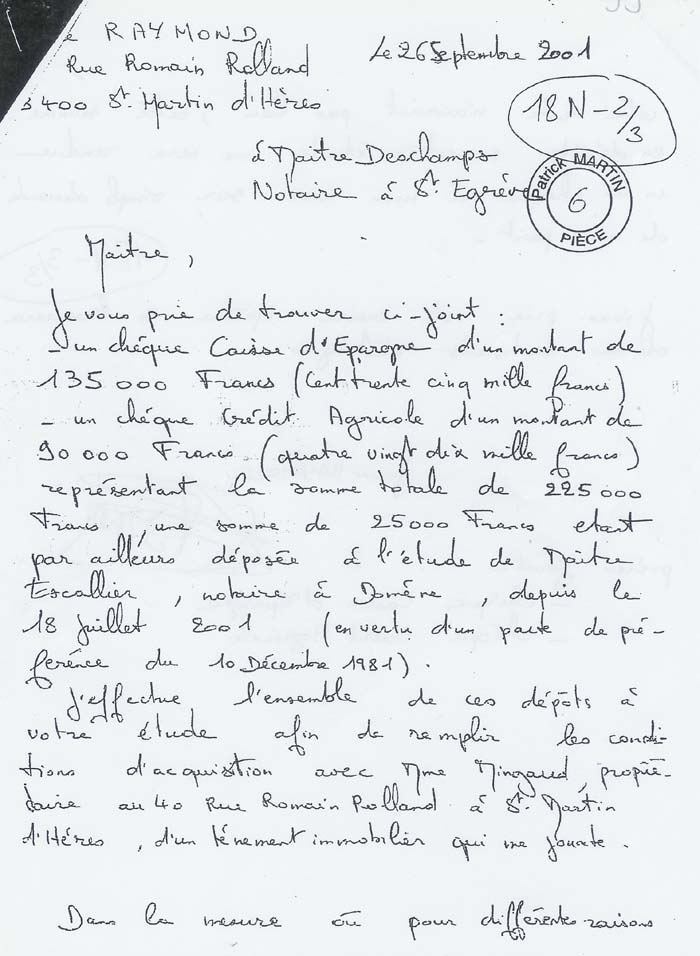 RAYMOND
Rue Romain Rolland
400 St. Martin d'Hères
Le 26 Septembre 2001
18 N - 2/3
à Maître Deschamps
Notaire à St. Egrève
Patrick MARTIN
6
PIÈCE
Maître,
Je vous prie de trouver ci-joint :
- un chéque Caisse d'Epargne d'un montant de
135 000 Francs (Cent trente cinq mille francs)
- un chéque Crédit Agricole d'un montant de
90 000 Francs (quatre vingt dix mille francs)
représentant la somme totale de 225 000
Francs, une somme de 25 000 Francs etant
par ailleurs déposée à l'étude de Maître
Escallier, notaire à Domène, depuis le
18 Juillet 2001 (en vertu d'un pacte de pré-
férence du 10 Décembre 1981).
J'effectue l'ensemble de ces dépôts à
votre étude afin de remplir les condi-
tions d'acquistion avec Mme Mingaud, proprié-
taire au 40 Rue Romain Rolland à St. Martin
d'Hères, d'un ténement immobilier qui me jouxte.
Dans la mesure où pour différentes raisons